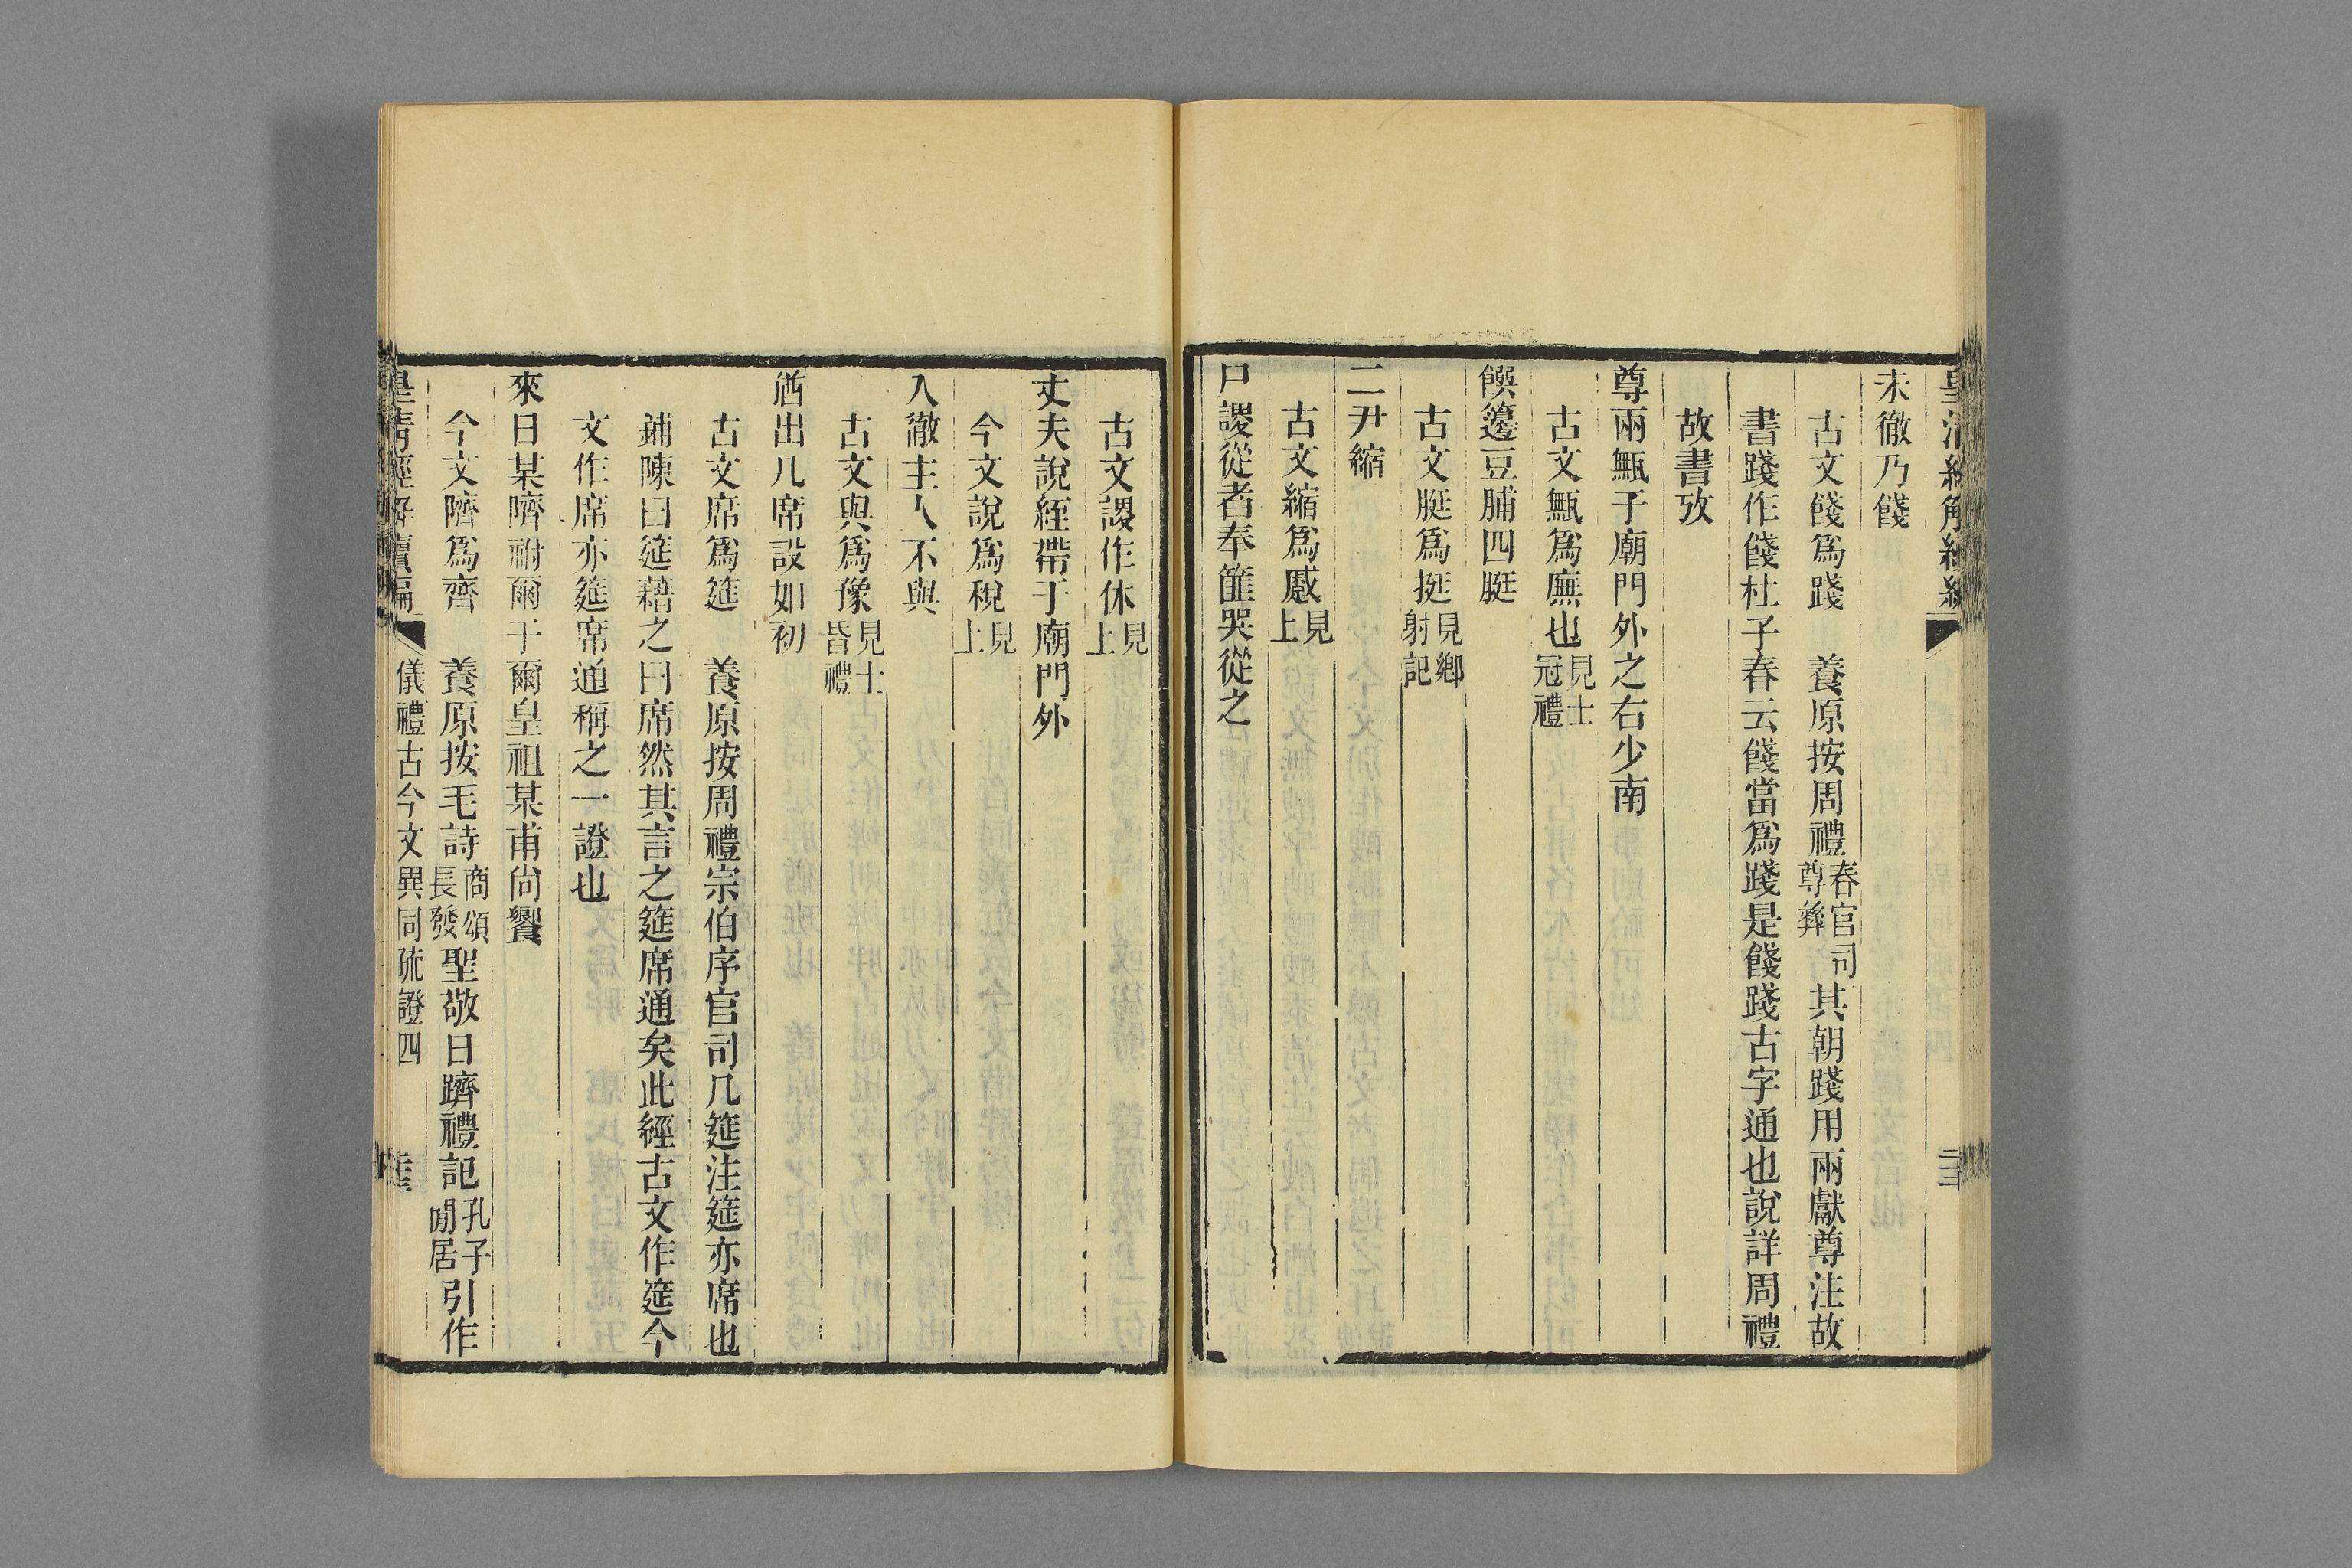 未徹乃餞
古文餞爲踐　養原按周禮春官司尊彝其朝踐用兩獻尊注故
書踐作餞杜子春云餞當爲踐是餞踐古字通也說詳周禮
故書攷
尊兩甒于廟門外之右少南
古文甒爲廡也見士冠禮
饌籩豆脯四脡
古文脡爲挺見鄉射記
二尹縮
古文縮爲蹙見上
尸謖從者奉篚哭從之
古文謖作休見上
丈夫說絰帶于廟門外
今文說爲稅見上
入徹主人不與
古文與爲豫見士昏禮
猶出几席設如初
古文席爲筵　養原按周禮宗伯序官司几筵注筵亦席也
鋪陳曰筵藉之曰席然其言之筵席通矣此經古文作筵今
文作席亦筵席通稱之一證也
來日某隮祔爾于爾皇祖某甫尙饗
今文隮爲齊　養原按毛詩商頌長發聖敬日躋禮記孔子閒居引作
皇清經解續編　儀禮古今文異同疏證四